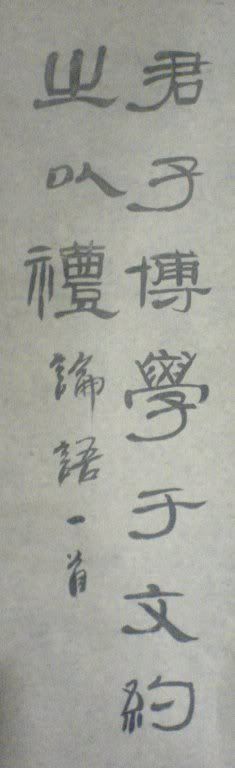 君子博學于文約
之以禮論語一首